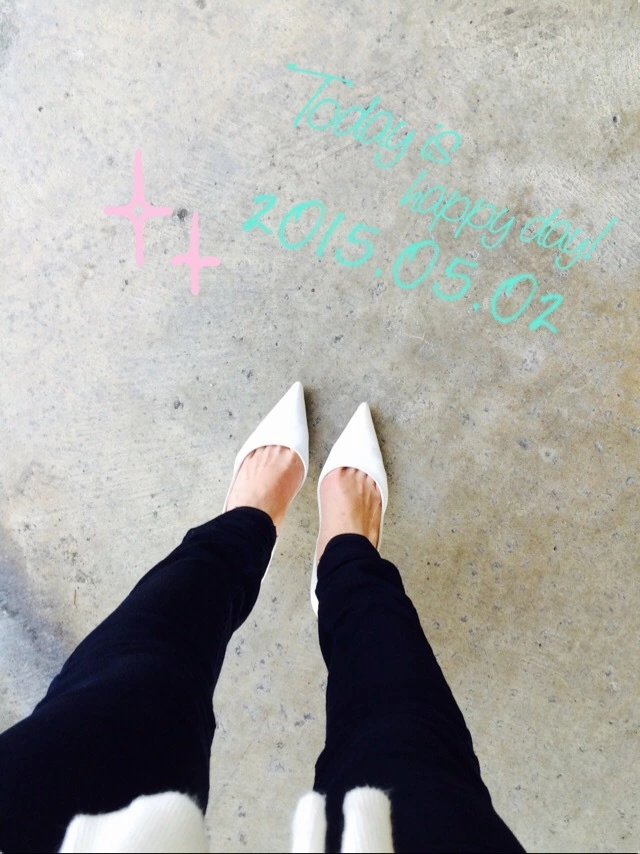 Today is
happy day!
2015.05.02